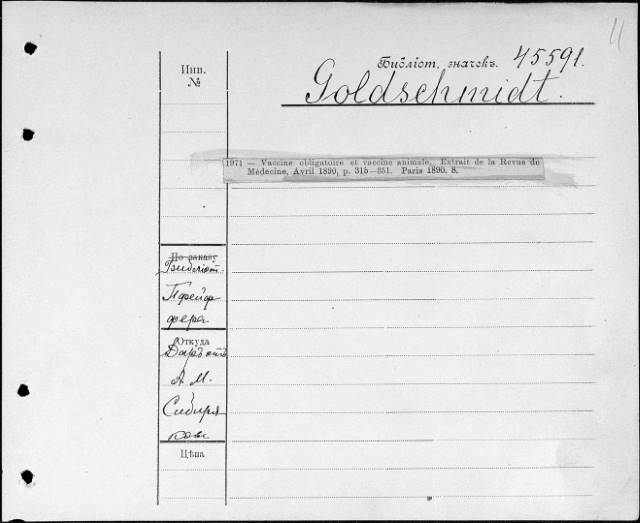 11
Инв.
№
Библіот. значекъ. 45591.
Goldschmidt.
1971 — Vaccine obligatoire et vaccine animale. Extrait de la Revue de
Médecine, Avril 1890, p. 315—351. Paris 1890. 8.
По заказу
Библіот.
Пфейф
фера
Откуда
Даръ отъ
А М.
Сибиря
кова
Цѣна